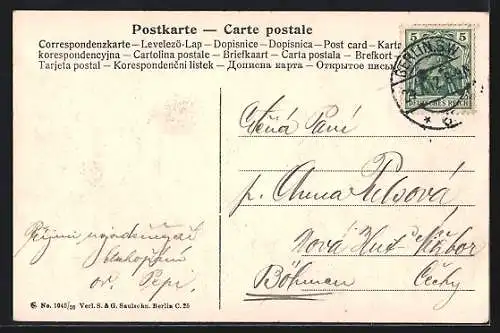 Postkarte — Carte postale
Correspondenzkarte – Levelező-Lap – Dopisnice – Dopisnica – Post card – Karta
korespondencyjna – Cartolina postale – Briefkaart – Carta postala – Brefkort
Tarjeta postal – Korespondenční lístek – Дописна карта – Открытое письмо
5 5
BERLIN. S.W.
DEUTSCHES REICH
Ctěná Paní
p. Anna
Nová Huť
Böhmen Čechy
Přijmi
Pepi
No. 1043/20 Verl. S. & G. Saulsohn. Berlin C. 25